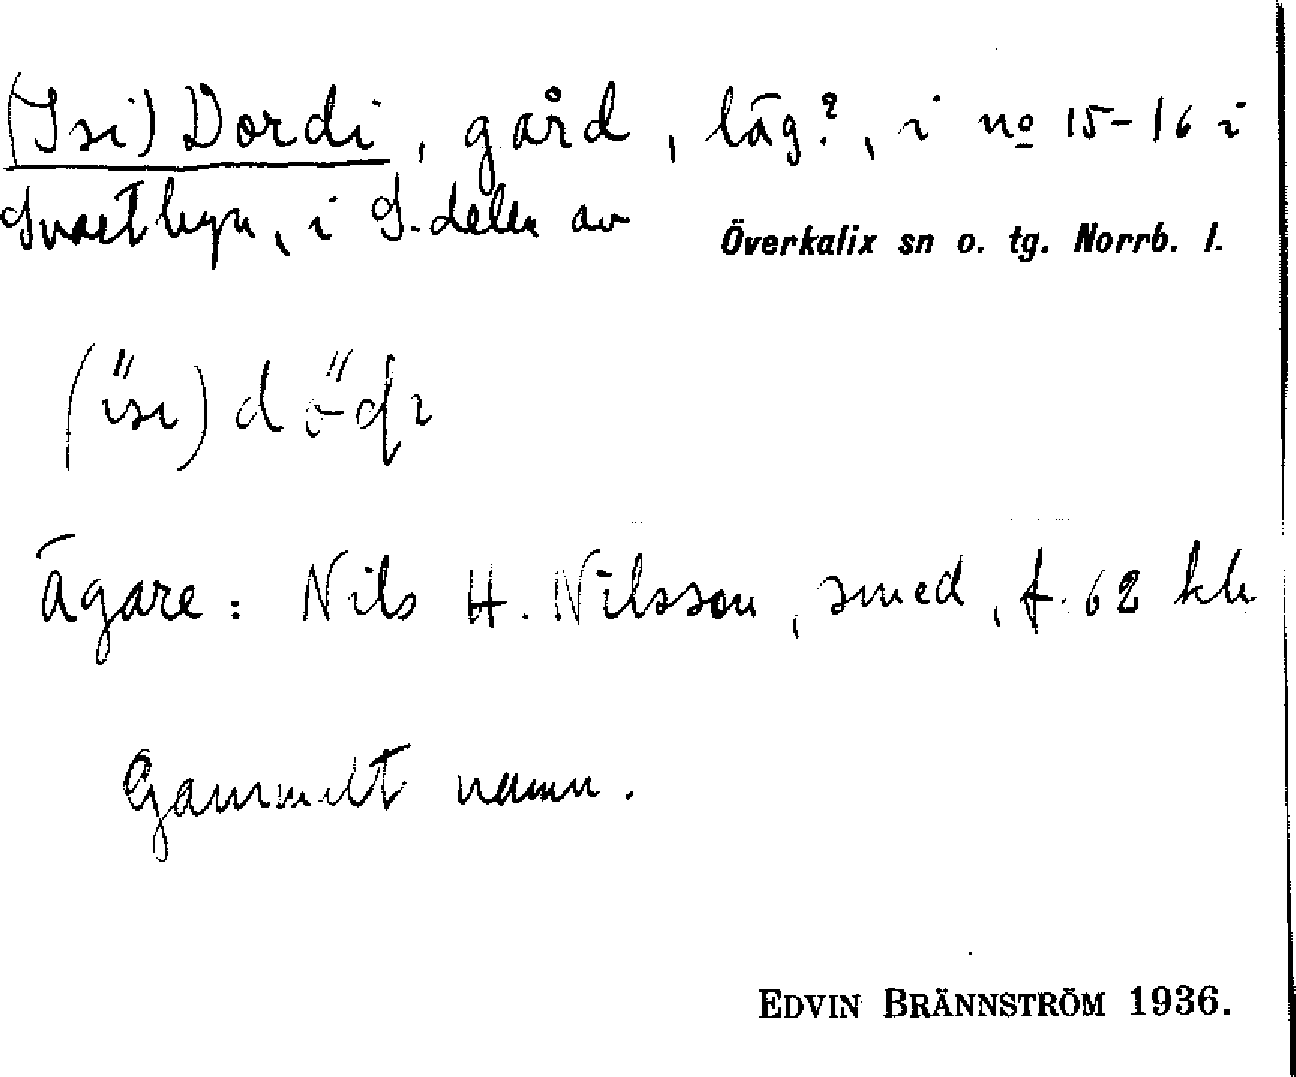 (Isi) Dordi, gård, läg?, i no 15-16 i
Svartbyn, i S. delen av
Överkalix sn o. tg. Norrb. l.
Ägare: Nils H. Nilsson, smed, f. 62 hh
Gammalt namn.
EDVIN BRÄNNSTRÖM 1936.